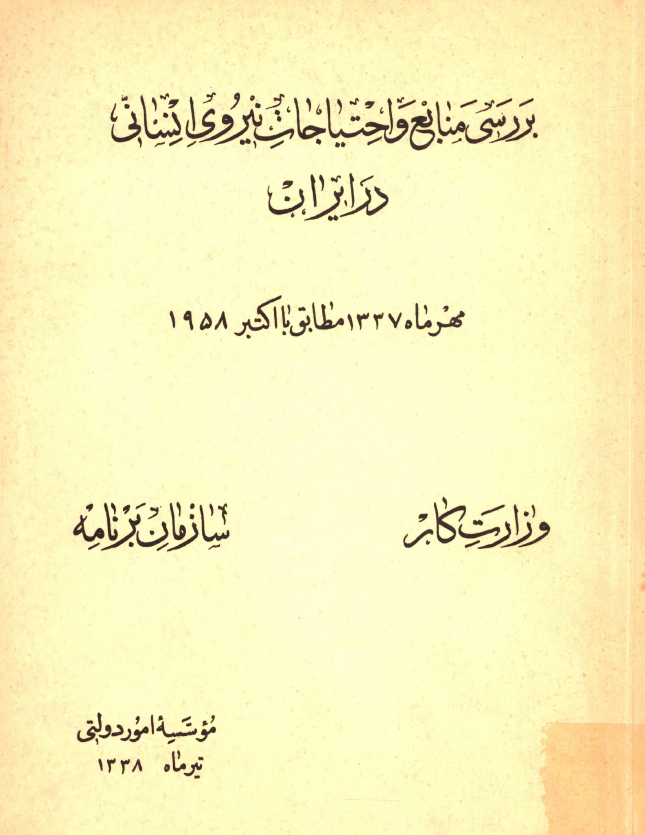 بررسی منابع و احتیاجات نیروی انسانی
در ایران
مهر ماه ۱۳۳۷ مطابق با اکتبر ۱۹۵۸
وزارت کار
سازمان برنامه
مؤسسهٔ امور دولتی
تیر ماه ۱۳۳۸